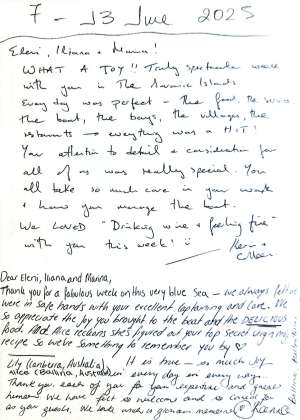 7 - 13 June 2025
Eleni, Iliana + Marina!
WHAT A JOY!! Truly spectacular week
with you in The Saronic Islands
Every day was perfect - the food, the service
the boat, the bays, the villages, the
restaurants → everything was a HIT!
Your attention to detail & consideration for
all of us was really special. You
all take so much care in your work
+ how you manage the boat.
We LOVED "Drinking wine + feeling fine"
with you this week!
Dear Eleni, Iliana and Marina,
Thank you for a fabulous week on this very blue Sea - we always felt we
were in safe hands with your excellent captaining and care. We
so appreciate the joy you brought to the boat and the DELICIOUS
food. And Alice reckons she's figured out your top secret
recipe so we've something to remember you by
Lity (Canberra, Australia)
Alice (Canberra, Australia)
It is true - so much joy
every day in every way.
Thank you each of you for your expertise and great
humour. We have felt so welcome and so cared for
as your guests. We take with us glorious memories